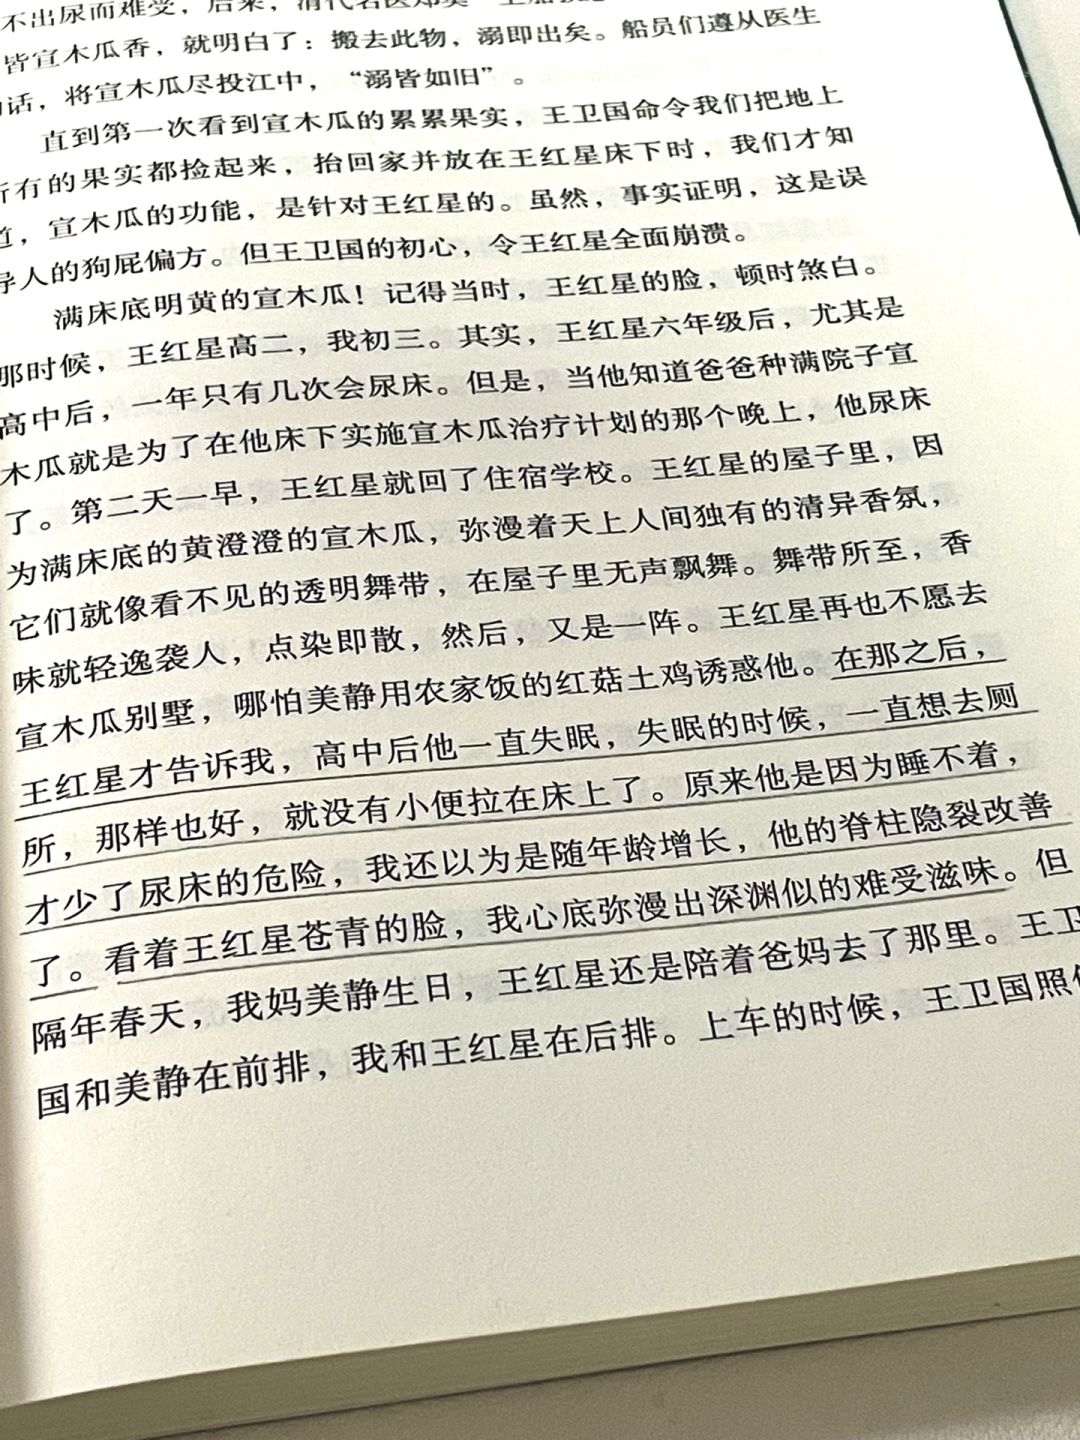 不出尿而难受，后来，清代名医郑奚一上船
皆宣木瓜香，就明白了：搬去此物，溺即出矣。船员们遵从医生
话，将宣木瓜尽投江中，“溺皆如旧”。
直到第一次看到宣木瓜的累累果实，王卫国命令我们把地上
所有的果实都捡起来，抬回家并放在王红星床下时，我们才知
道，宣木瓜的功能，是针对王红星的。虽然，事实证明，这是误
导人的狗屁偏方。但王卫国的初心，令王红星全面崩溃。
满床底明黄的宣木瓜！记得当时，王红星的脸，顿时煞白。
那时候，王红星高二，我初三。其实，王红星六年级后，尤其是
高中后，一年只有几次会尿床。但是，当他知道爸爸种满院子宣
木瓜就是为了在他床下实施宣木瓜治疗计划的那个晚上，他尿床
了。第二天一早，王红星就回了住宿学校。王红星的屋子里，因
为满床底的黄澄澄的宣木瓜，弥漫着天上人间独有的清异香氛，
它们就像看不见的透明舞带，在屋子里无声飘舞。舞带所至，香
味就轻逸袭人，点染即散，然后，又是一阵。王红星再也不愿去
宣木瓜别墅，哪怕美静用农家饭的红菇土鸡诱惑他。在那之后，
王红星才告诉我，高中后他一直失眠，失眠的时候，一直想去厕
所，那样也好，就没有小便拉在床上了。原来他是因为睡不着，
才少了尿床的危险，我还以为是随年龄增长，他的脊柱隐裂改善
了。看着王红星苍青的脸，我心底弥漫出深渊似的难受滋味。但
隔年春天，我妈美静生日，王红星还是陪着爸妈去了那里。王卫
国和美静在前排，我和王红星在后排。上车的时候，王卫国照